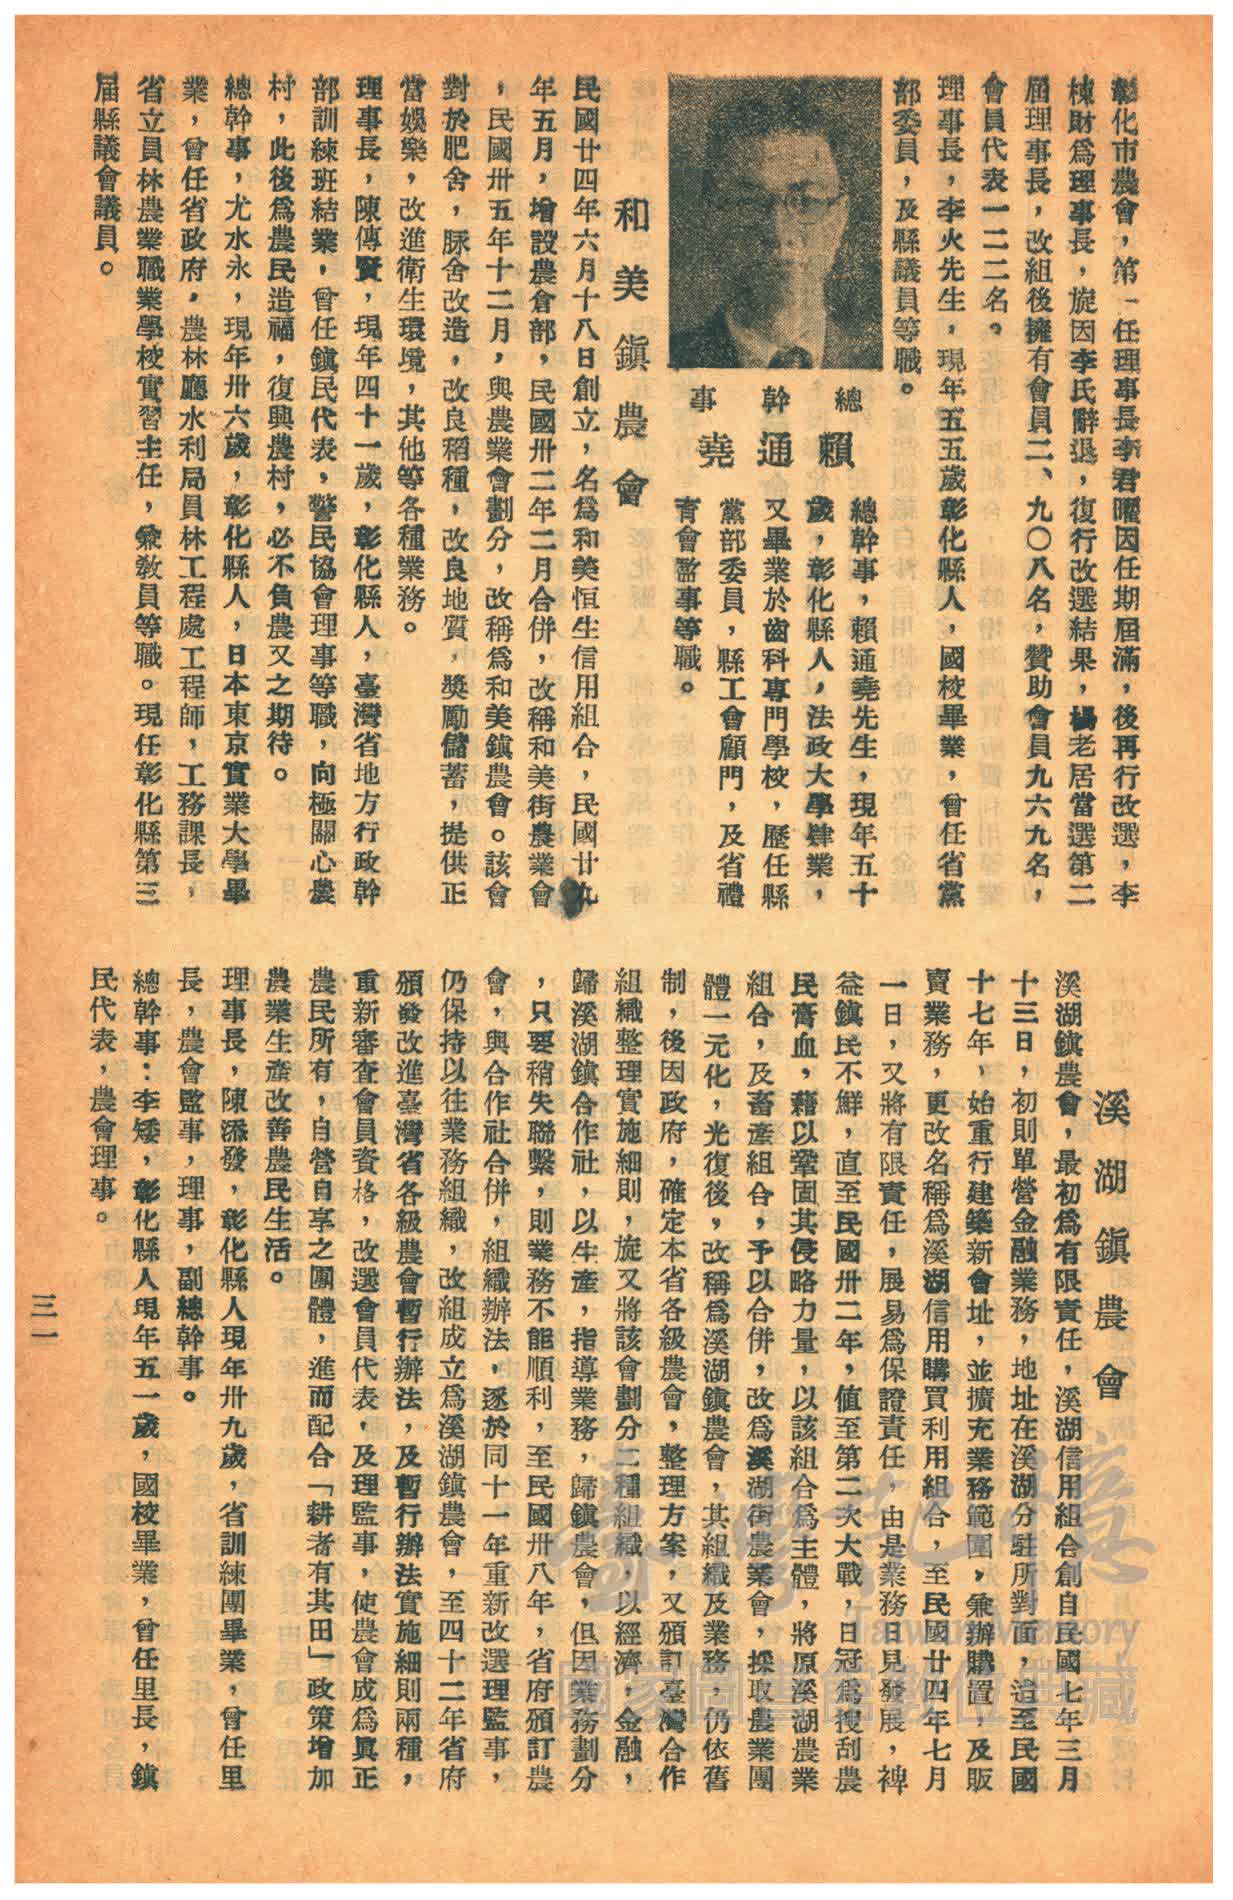 彰化市農會，第一任理事長李君曜因任期屆滿，後再行改選，李
棟財爲理事長，旋因李氏辭退，復行改選結果，楊老居當選第二
屆理事長，改組後擁有會員二、九〇八名，贊助會員九六九名，
會員代表一二二名。
理事長，李火先生，現年五五歲彰化縣人，國校畢業，曾任省黨
部委員，及縣議員等職。
總幹事
賴通堯
總幹事，賴通堯先生，現年五十
歲，彰化縣人，法政大學肄業，
又畢業於齒科專門學校，歷任縣
黨部委員，縣工會顧門，及省禮
育會監事等職。
和美鎭農會
民國廿四年六月十八日創立，名爲和美恒生信用組合，民國廿九
年五月，增設農倉部，民國卅二年二月合併，改稱和美街農業會
，民國卅五年十二月，與農業會劃分，改稱爲和美鎭農會。該會
對於肥舍，豚舍改造，改良稻種，改良地質，獎勵儲蓄，提供正
當娛樂，改進衛生環境，其他等各種業務。
理事長，陳傳賢，現年四十一歲，彰化縣人，臺灣省地方行政幹
部訓練班結業，曾任鎭民代表，警民協會理事等職，向極關心農
村，此後爲農民造福，復興農村，必不負農又之期待。
總幹事，尤水永，現年卅六歲，彰化縣人，日本東京實業大學畢
業，曾任省政府，農林廳水利局員林工程處工程師，工務課長，
省立員林農業職業學校實習主任，兼教員等職。現任彰化縣第三
屆縣議會議員。
溪湖鎭農會
溪湖鎭農會，最初爲有限責任，溪湖信用組合創自民國七年三月
十三日，初則單營金融業務，地址在溪湖分駐所對面，迨至民國
十七年，始重行建築新會址，並擴充業務範圍，兼辦購置，及販
賣業務，更改名稱爲溪湖信用購買利用組合，至民國廿四年七月
一日，又將有限責任，展易爲保證責任，由是業務日見發展，裨
益鎭民不鮮，直至民國卅二年，值至第二次大戰，日冠爲搜刮農
民膏血，藉以鞏固其侵略力量，以該組合爲主體，將原溪湖農業
組合，及畜產組合，予以合併，改爲溪湖街農業會，採取農業團
體一元化，光復後，改稱爲溪湖鎭農會，其組織及業務，仍依舊
制，後因政府，確定本省各級農會，整理方案，又頒訂臺灣合作
組織整理實施細則，旋又將該會劃分二種組織，以經濟，金融，
歸溪湖鎭合作社，以生產，指導業務，歸鎭農會，但因業務劃分
，只要稍失聯繫，則業務不能順利，至民國卅八年，省府頒訂農
會，與合作社合併，組織辦法，逐於同十一年重新改選理監事，
仍保持以往業務組織，改組成立爲溪湖鎭農會，至四十二年省府
頒發改進臺灣省各級農會暫行辦法，及暫行辦法實施細則兩種，
重新審查會員資格，改選會員代表，及理監事，使農會成爲眞正
農民所有，自營自享之團體，進而配合「耕者有其田」政策增加
農業生產改善農民生活。
理事長，陳添發，彰化縣人現年卅九歲，省訓練團畢業，曾任里
長，農會監事，理事，副總幹事。
總幹事：李矮，彰化縣人現年五一歲，國校畢業，曾任里長，鎭
民代表，農會理事。
三一
臺灣記憶
Taiwan Memory
國家圖書館數位典藏